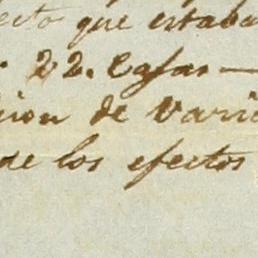 ecto que estaba
22. Cajas —
cion de Vari
de los efectos